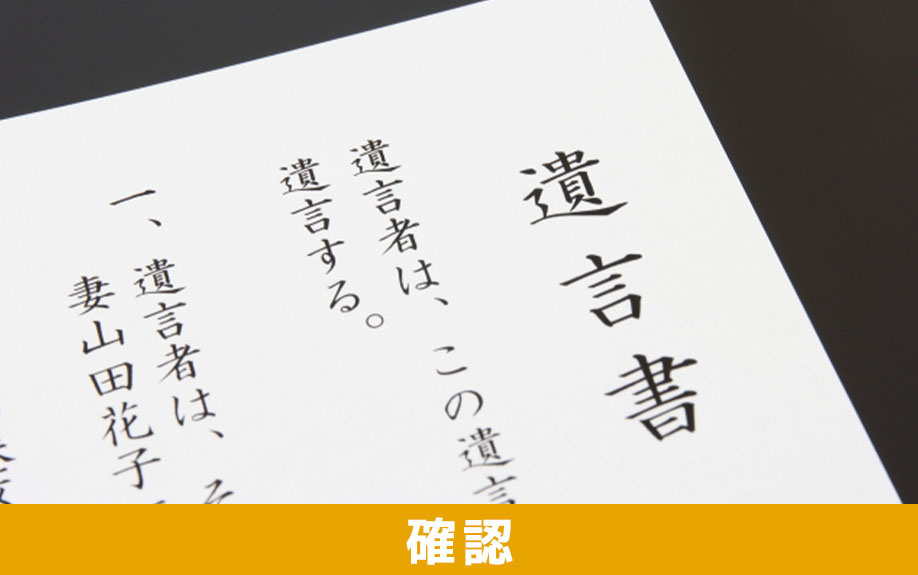 遺言書
遺言者は、この遺言
遺言する。
一、遺言者は、そ
妻山田花子
確認